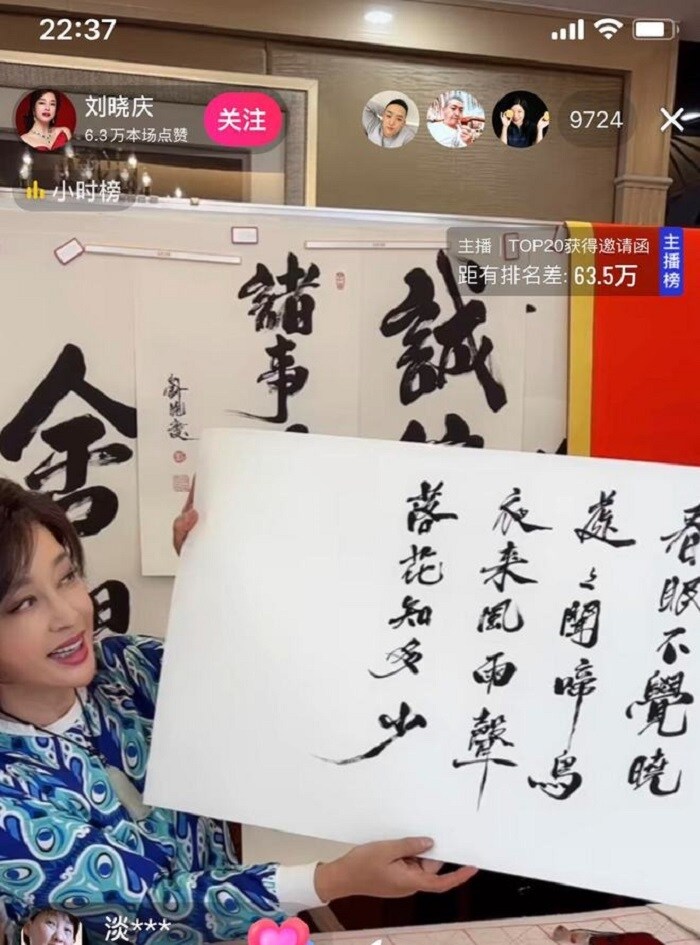 22:37
刘晓庆
6.3万本场点赞
关注
9724
小时榜
主播 TOP20获得邀请函
距有排名差: 63.5万
主播榜
誠
諸事
劉曉慶
舍
春眼不覺曉
處々聞啼鳥
衣来風雨聲
落花知多少
淡***